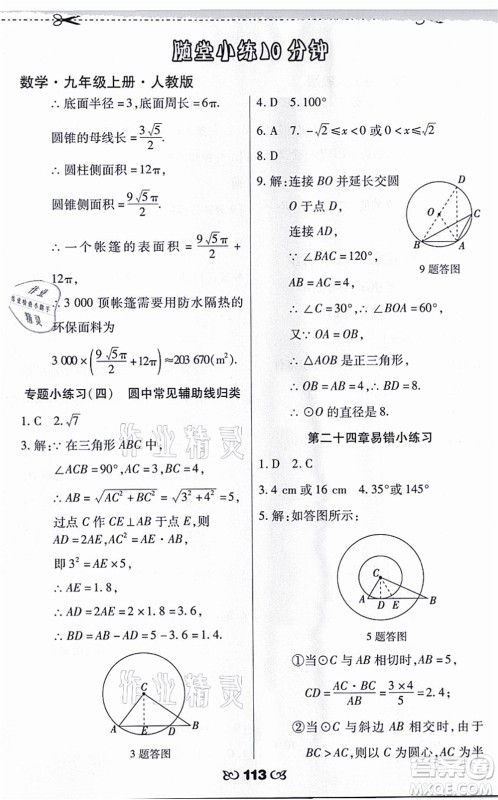 随堂小练10分钟
数学·九年级上册·人教版
∴ 底面半径=3,底面周长=6π.
圆锥的母线长=3√5/2.
∴ 圆柱侧面积=12π,
圆锥侧面积=9√5π/2.
∴ 一个帐篷的表面积=9√5π/2+
12π,
∴ 3 000 顶帐篷需用防水隔热的
环保面料为
3 000×(9√5π/2+12π)≈203 670(m²).
专题小练习(四) 圆中常见辅助线归类
1. C 2. √7
3. 解:∵ 在三角形ABC中,
∠ACB=90°,AC=3,BC=4,
∴ AB=√(AC²+BC²)=5,
过点 C 作 CE⊥AB 于点 E,则
AD=2AE,AC²=AE×AB,
即 3²=AE×5
∴ AE=1.8,
∴ AD=2AE=2×1.8=3.6,
∴ BD=AB-AD=5-3.6=1.4.
C
A E D B
3题答图
4. D 5. 100°
6. A 7. -√2≤x<0 或 0<x≤√2
8. D
9. 解:连接 BO 并延长交圆
O 于点 D,连接 OA、DA.
∵ AB=AC,
∵ ∠BAC=120°,
∴ ∠BCA=30°,
∴ ∠BDA=30°,
∴ ∠BOA=60°,
∴ △AOB 是正三角形,
∴ OB=OA=AB=4,
∴ BD=8.
D
O C
B A
9题答图
第二十四章易错小练习
1. D 2. C
3. 4 cm 或 16 cm 4. 35°或 145°
5. 解:如答图所示:
C
A D E B
5题答图
①当⊙C 与 AB 相切时,
CD=AC·BC/AB=3×4/5
②当⊙C 与斜边 AB 相交时,由
于 BC>AC,则以 C 为圆心,AC 为半
113
作业精灵
作业精灵
作业
精灵
答案圈
MXQE.COM